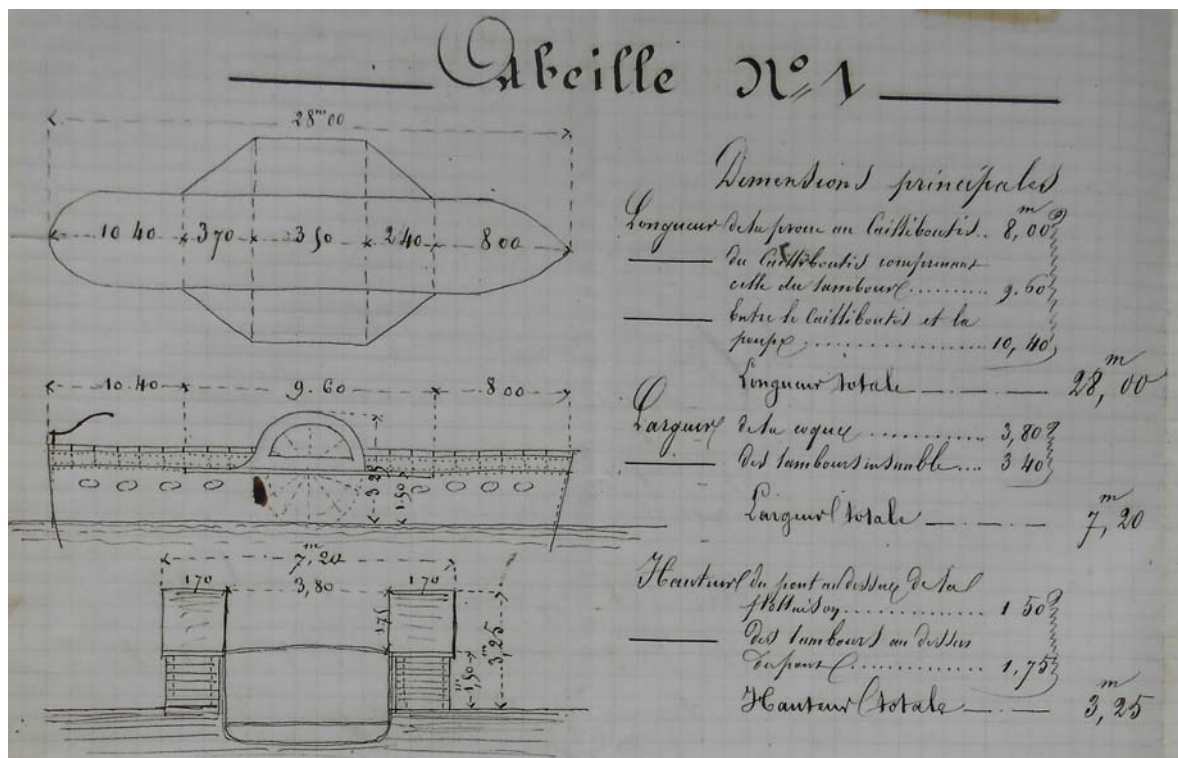 Abeille Nº 1
28ᵐ00
10 40 370 350 240 800
10.40 9.60 8 00
3,25
1,50
7ᵐ,20
170 3,80 170
1,75
1ᵐ,50
3ᵐ,25
Dimensions principales
Longueur de la proue au Cailliboutis.. 8,ᵐ00
—— du Cailliboutis comprenant
celle du tambour......... 9.60
—— entre le Cailliboutis et la
poupe................... 10,40
Longueur totale — . — . — 28,ᵐ00
Largeur de la coque............ 3,80
—— des tambours ensemble.... 3 40
Largeur totale — . — . — 7,ᵐ20
Hauteur du pont au dessus de la
flottaison................ 1 50
—— des tambours au dessus
du pont................ 1,75
Hauteur totale — . — . — 3,ᵐ25